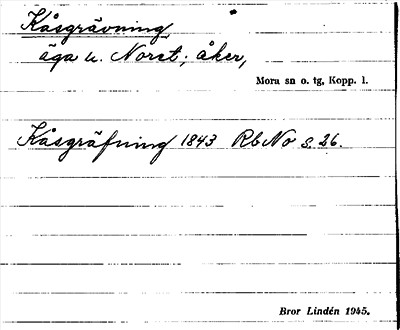 Kåsgrävning
äga u. Noret; åker,
Mora sn o. tg, Kopp. l.
Kåsgräfning 1843 RbNo s. 26.
Bror Lindén 1945.